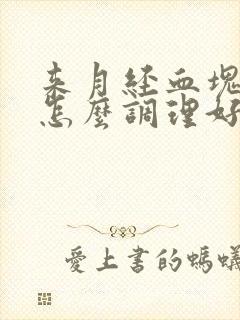 来月经血塊
怎麼調理好
愛上書的螞蟻